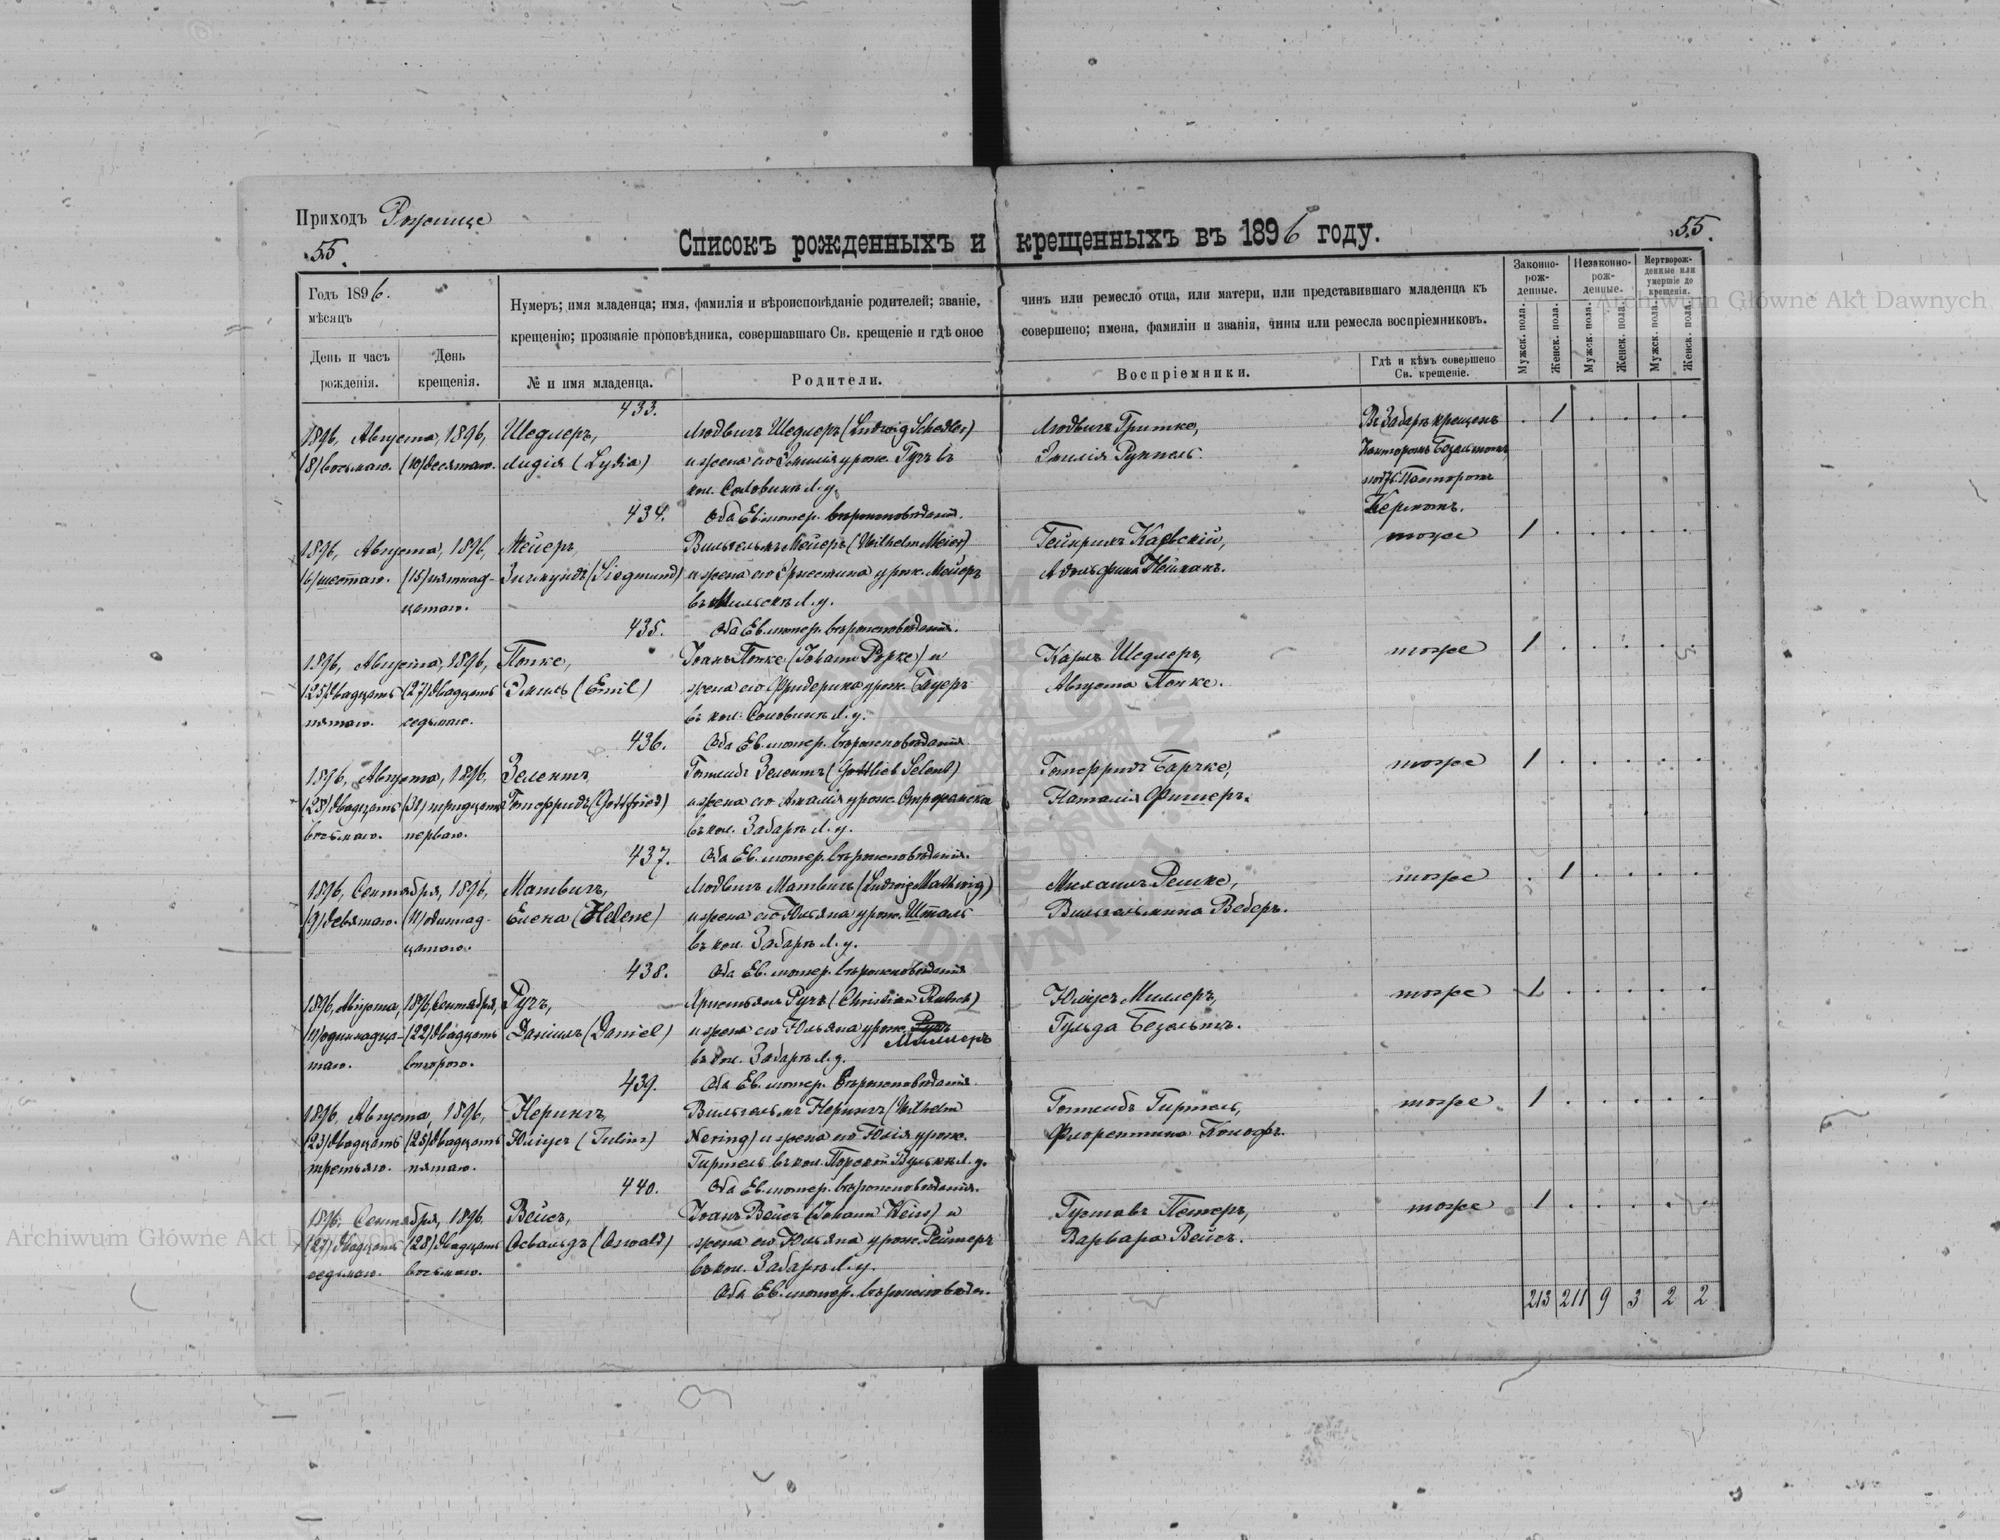 Приходъ Рожище
55.
55.
Списокъ рожденныхъ и крещенныхъ въ 1896 году.
Годъ 1896.
мѣсяцъ
День и часъ рожденія.
День крещенія.
Нумеръ; имя младенца; имя, фамилія и вѣроисповѣданіе родителей; званіе, чинъ или ремесло отца, или матери, или представившаго младенца къ
крещенію; прозваніе проповѣдника, совершавшаго Св. крещеніе и гдѣ оное совершено; имена, фамиліи и званія, чины или ремесла воспріемниковъ.
№ и имя младенца.
Родители.
Воспріемники.
Гдѣ и кѣмъ совершено
Св. крещеніе.
Законно-
рож-
денные.
Незаконно-
рож-
денные.
Мертворож-
денные или
умершіе до
крещенія.
Мужск. пола.
Женск. пола.
Мужск. пола.
Женск. пола.
Мужск. пола.
Женск. пола.
433.
1896, Августа, 1896, Шедлеръ, Людвигъ Шедлеръ (Ludwig Schedler) Людвигъ Гритке, Въ Забарѣ крещенъ . 1 . . . .
(8) восьмаго. (10) десятаго. Лидія (Lydia) и жена его Эмилія урож. Гучъ въ Эмилія Руппель. Канторомъ Безальтомъ
кол. Соловинъ Л. у. Пасторомъ
434. Оба Ев. лютер. вѣроисповѣданія. Кермомъ.
1896, Августа, 1896, Мейеръ, Вильгельмъ Мейеръ (Wilhelm Meier) Гейнрихъ Карвскій, тоже 1 . . . . .
(6) шестаго. (15) пятнад- Зигмундъ (Siegmund) и жена его Эрнестина урож. Мейеръ Адольфина Нейманъ.
цатаго. въ Мильскѣ Л. у.
435. Оба Ев. лютер. вѣроисповѣданія.
1896, Августа, 1896, Попке, Іоанъ Попке (Johann Popke) и Карлъ Шедлеръ, тоже 1 . . . . .
(25) двадцать (27) двадцать Эмиль (Emil) жена его Фридерика урож. Бауеръ Августа Попке.
пятаго. седьмаго. въ кол. Соловинъ Л. у.
436. Оба Ев. лютер. вѣроисповѣданія
1896, Августа, 1896. Зелентъ Готлибъ Зелентъ (Gottlieb Selent) Готфридъ Барчке, тоже 1 . . . . .
(28) двадцать (31) тридцать Готфридъ (Gottfried) и жена его Амалія урож. Наталія Фишеръ.
восьмаго. перваго. въ кол. Забарѣ Л. у.
437. Оба Ев. лютер. вѣроисповѣданія.
1896, Сентября, 1896, Матвигъ, Людвигъ Матвигъ (Ludwig Mathwig) Михаилъ Решке, тоже . 1 . . . .
(9) девятаго. (11) одиннад- Елена (Helene) и жена его Юльяна урож. Шталь Вильгельмина Веберъ.
цатаго. въ кол. Забарѣ Л. у.
438. Оба Ев. лютер. вѣроисповѣданія
1896, Августа, 1896, Сентября, Ручъ, Христьянъ Ручъ (Christian Rutsch) Юліусъ Миллеръ, тоже 1 . . . . .
(11) одиннадца- (22) двадцать Даніилъ (Daniel) и жена его Юльяна урож. Ручъ Гульда Безальтъ.
Миллеръ
таго. втораго. въ кол. Забарѣ Л. у.
439. Оба Ев. лютер. вѣроисповѣданія.
1896, Августа, 1896, Нерингъ, Вильгельмъ Нерингъ (Wilhelm Готлибъ Гиртель, тоже 1 . . . . .
(23) двадцать (25) двадцать Юліусъ (Julius) Nering) и жена его Юлія урож. Флорентина Конофъ.
третьяго. пятаго. Гиртель въ кол. Порской Вулькѣ Л. у.
440. Оба Ев. лютер. вѣроисповѣданія.
1896, Сентября, 1896. Вейсъ, Іоанъ Вейсъ (Johann Weiss) и Густавъ Петеръ, тоже 1 . . . . .
(27) двадцать (28) двадцать Освальдъ (Oswald) жена его Юльяна урож. Рейтеръ Варвара Вейсъ.
седьмаго. восьмаго. въ кол. Забарѣ Л. у.
Оба Ев. лютер. вѣроисповѣдан.
213 211 9 3 2 2
Archiwum Główne Akt Dawnych
Archiwum Główne Akt Dawnych